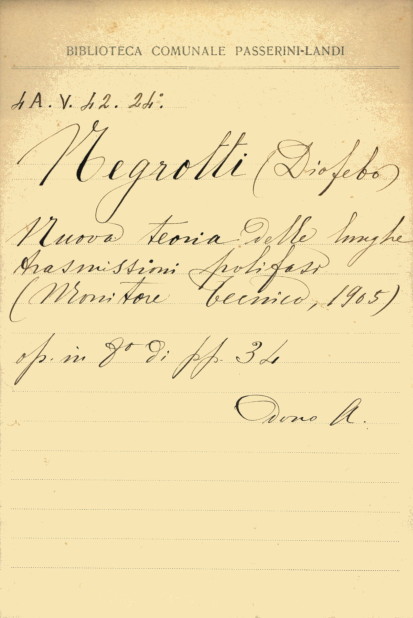 BIBLIOTECA COMUNALE PASSERINI-LANDI
4A. V. 42. 24.
Negrotti (Diofebo)
Nuova teoria delle lunghe
trasmissioni polifasi
(Monitore tecnico, 1905)
op. in 8° di pp. 34
Dono A.